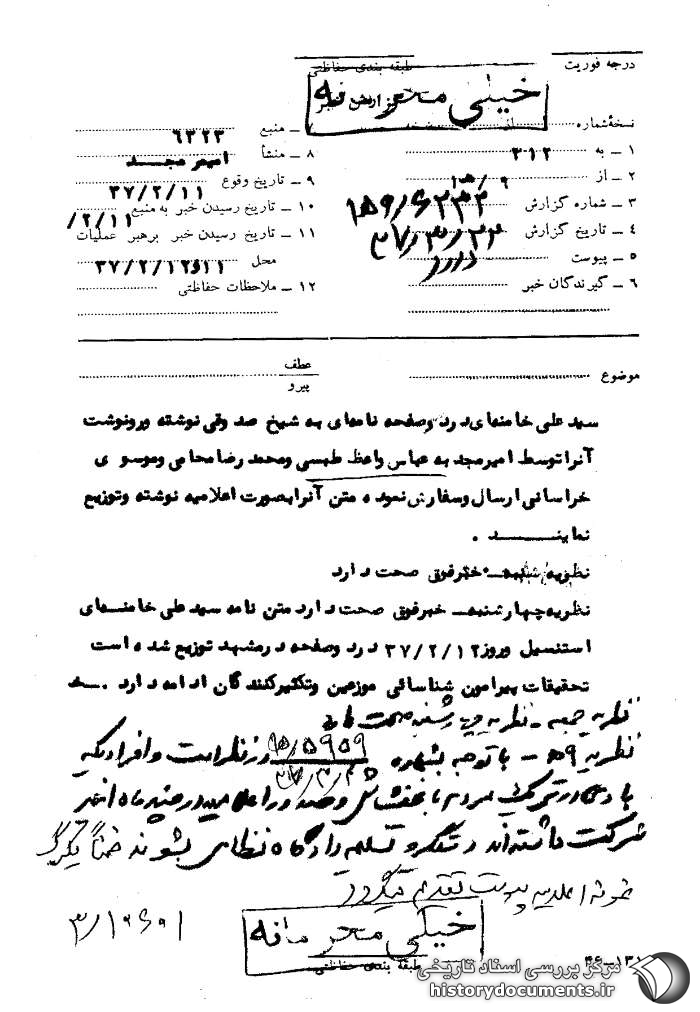 درجه فوریت
طبقه بندی حفاظتی
خیلی محرمانه
گزارش خبر
نسخهٔ شماره
۱ ـ به ۳۱۲
۲ ـ از ۹/ه‍ ۱
۳ ـ شماره گزارش
۴ ـ تاریخ گزارش
۵ ـ پیوست دارد
۶ ـ گیرندگان خبر
۷ ـ منبع ۶۳۲۳
۸ ـ منشأ امیر مجد
۹ ـ تاریخ وقوع ۳۷/۲/۱۱
۱۰ ـ تاریخ رسیدن خبر به منبع /۲/۱۱
۱۱ ـ تاریخ رسیدن خبر برهبر عملیات
محل ۳۷/۲/۱۲و۱۱
۱۲ ـ ملاحظات حفاظتی
موضوع
عطف
پیرو
سید علی خامنه‌ای در دوصفحه نامه‌ای به شیخ صدوقی نوشته و رونوشت
آنرا توسط امیرمجد به عباس واعظ طبسی و محمد رضا محامی و موسوی
خراسانی ارسال و سفارش نموده متن آنرا بصورت اعلامیه نوشته و توزیع
نمایند .
نظریه شنبه ـ خبر فوق صحت دارد
نظریه چهارشنبه ـ خبر فوق صحت دارد متن نامه سید علی خامنه‌ای
استنسیل و روز ۳۷/۲/۱۲ در دوصفحه در مشهد توزیع شده است
تحقیقات پیرامون شناسائی موزعین و تکثیرکنندگان ادامه دارد .
نظریه جمعه ـ نظریه چهارشنبه صحت دارد
نظریه ۹ه‍ ـ با توجه بشماره
شرکت داشته‌اند دستگیر و تسلیم دادگاه نظامی بشوند ضمناً یکبرگ
نمونه اعلامیه پیوست تقدیم میگردد
خیلی محرمانه
طبقه بندی حفاظتی
مرکز بررسی اسناد تاریخی
historydocuments.ir